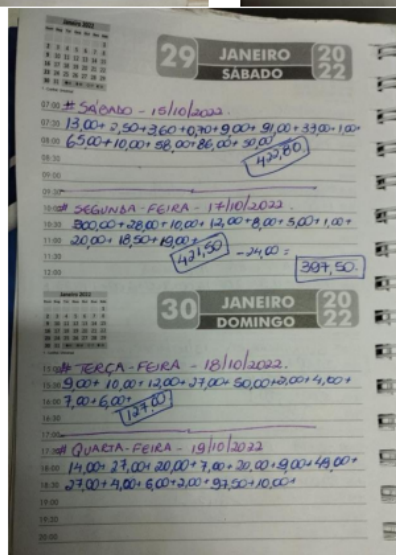 Janeiro 2022
29 JANEIRO 20
SÁBADO 22
07:00 # SÁBADO - 15/10/2022.
07:30 13,00+ 2,50+3,60+0,70+9,00+ 91,00+33,00+1,00+
08:00 65,00+10,00+ 58,00+86,00+ 50,00
08:30 422,80
09:00
09:30
10:00 # SEGUNDA-FEIRA - 17/10/2022.
10:30 300,00+28,00+10,00+ 12,00+8,00+ 5,00+1,00+
11:00 20,00+ 18,50+19,00+
11:30 421,50 -24,00 =
12:00 397,50.
Janeiro 2022
30 JANEIRO 20
DOMINGO 22
15:00 # TERÇA-FEIRA - 18/10/2022.
15:30 9,00+ 10,00+12,00+27,00+ 50,00+2,00+4,00+
16:00 7,00+6,00+
16:30 127,00
17:00
17:30 # QUARTA-FEIRA - 19/10/2022
18:00 14,00+ 27,00+20,00+7,00+20,00+9,00+49,00+
18:30 27,00+4,00+6,00+2,00+97,50+10,00+
19:00
19:30
20:00